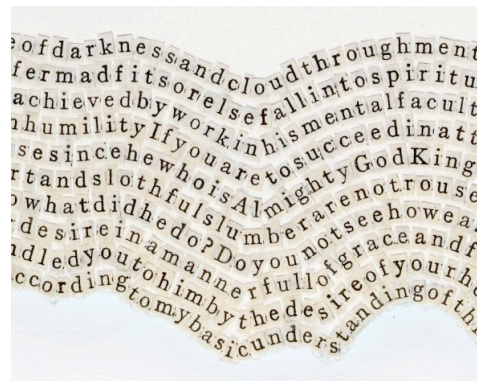 eofdarknessandcloudthroughment
fermadfitsorelsefallintospiritu
achievedbyworkinhismentalfacult
nhumilityIfyouaretosucceedinatt
sesincehewhoisAlmightyGodKing
rtandslothfulslumberarenotrouse
owhatdidhedo?Doyounotseehowea
desireinamannerfullofgraceandf
ndledyoutohimbythedesireofyourhe
ccordingtomybasicunderstandingofth